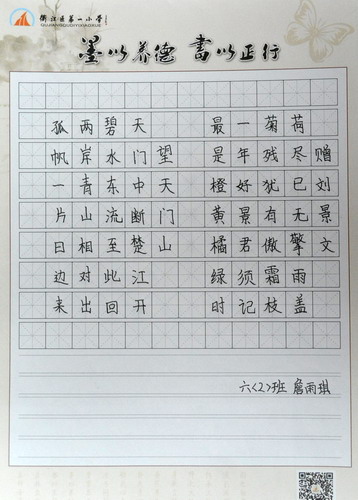 衢江区第一小学
QUJIANGQUDIYIXIAOXUE
墨以养德 書以正行
赠刘景文
荷尽已无擎雨盖
菊残犹有傲霜枝
一年好景君须记
最是橙黄橘绿时
望天门山
天门中断楚江开
碧水东流至此回
两岸青山相对出
孤帆一片日边来
六<2>班 詹雨琪